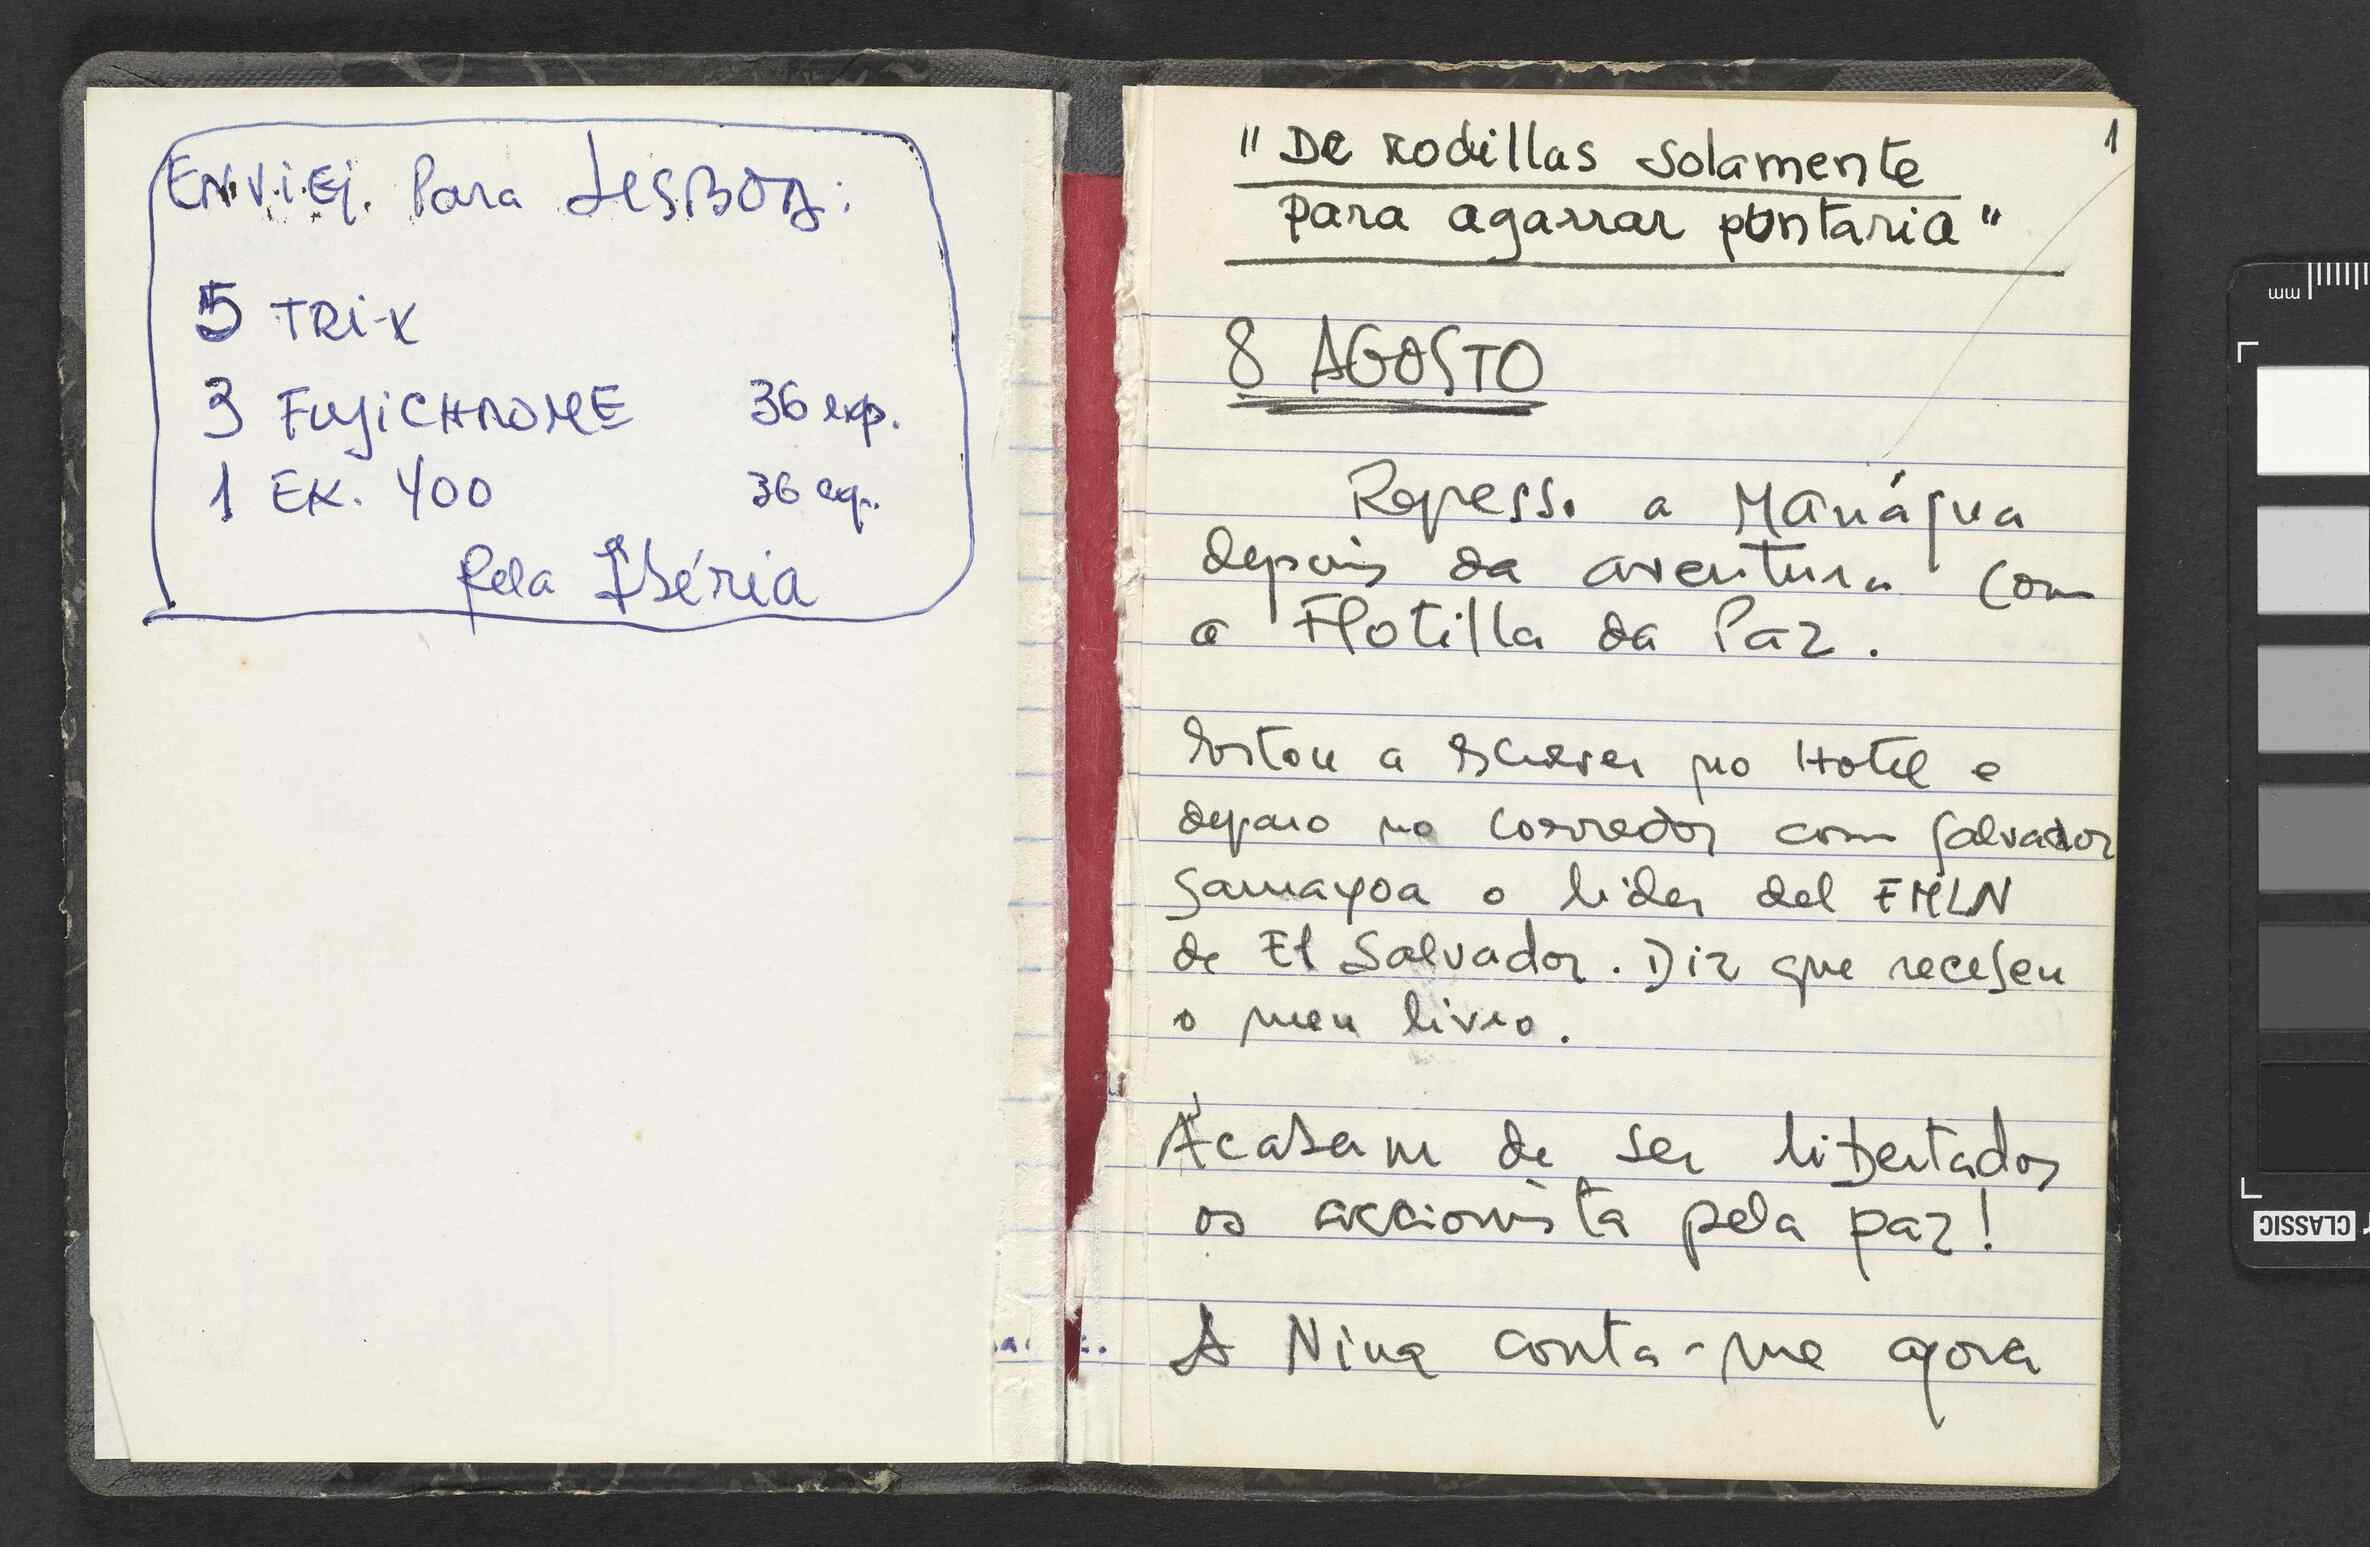 ENViEi. Para LISBOA:
5 TRi-X
3 FUJiCHROME 36 exp.
1 EK. 400 36 exp.
Pela Ibéria
1
"De rodillas solamente
para agarrar puntaria"
8 AGOSTO
Regresso a Manágua
depois da aventura com
a Flotilla da Paz.
Estou a escrever no Hotel e
deparo no corredor com Salvador
Samayoa o lider del FMLN
de El Salvador. Diz que recebeu
o meu livro.
Acabam de ser libertados
os accionista pela paz!
A Nina conta-me agora
mm
CLASSIC